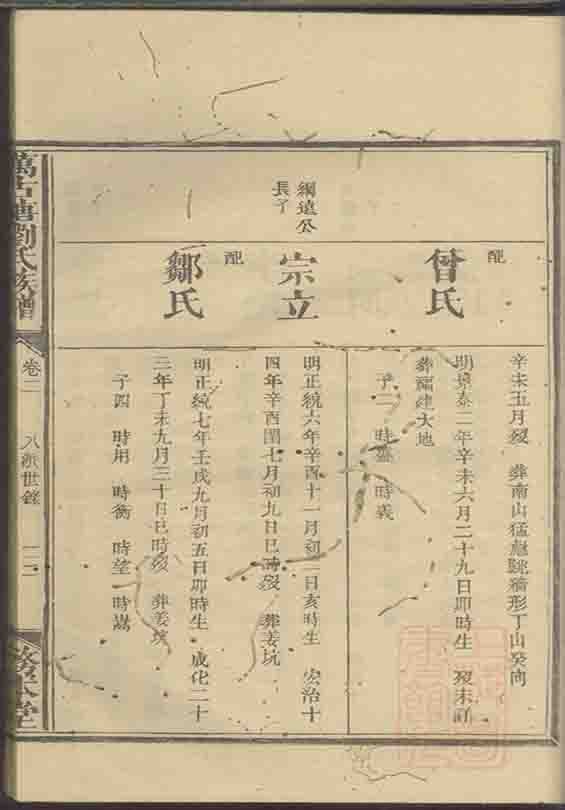 辛未五月歿 葬南山猛虎跳牆形丁山癸向
配
曾氏
明景泰二年辛未六月二十九日卯時生 歿未詳
葬福建大地
子二 時盛 時義
綱遠公
長子
宗立
明正統六年辛酉十一月初二日亥時生 宏治十
四年辛酉閏七月初九日巳時歿 葬姜坑
配
鄒氏
明正統七年壬戌九月初五日卯時生 成化二十
三年丁未九月三十日巳時歿 葬姜坑
子四 時用 時衡 時望 時嵩
萬古塘劉氏族譜
卷二 八派世錄